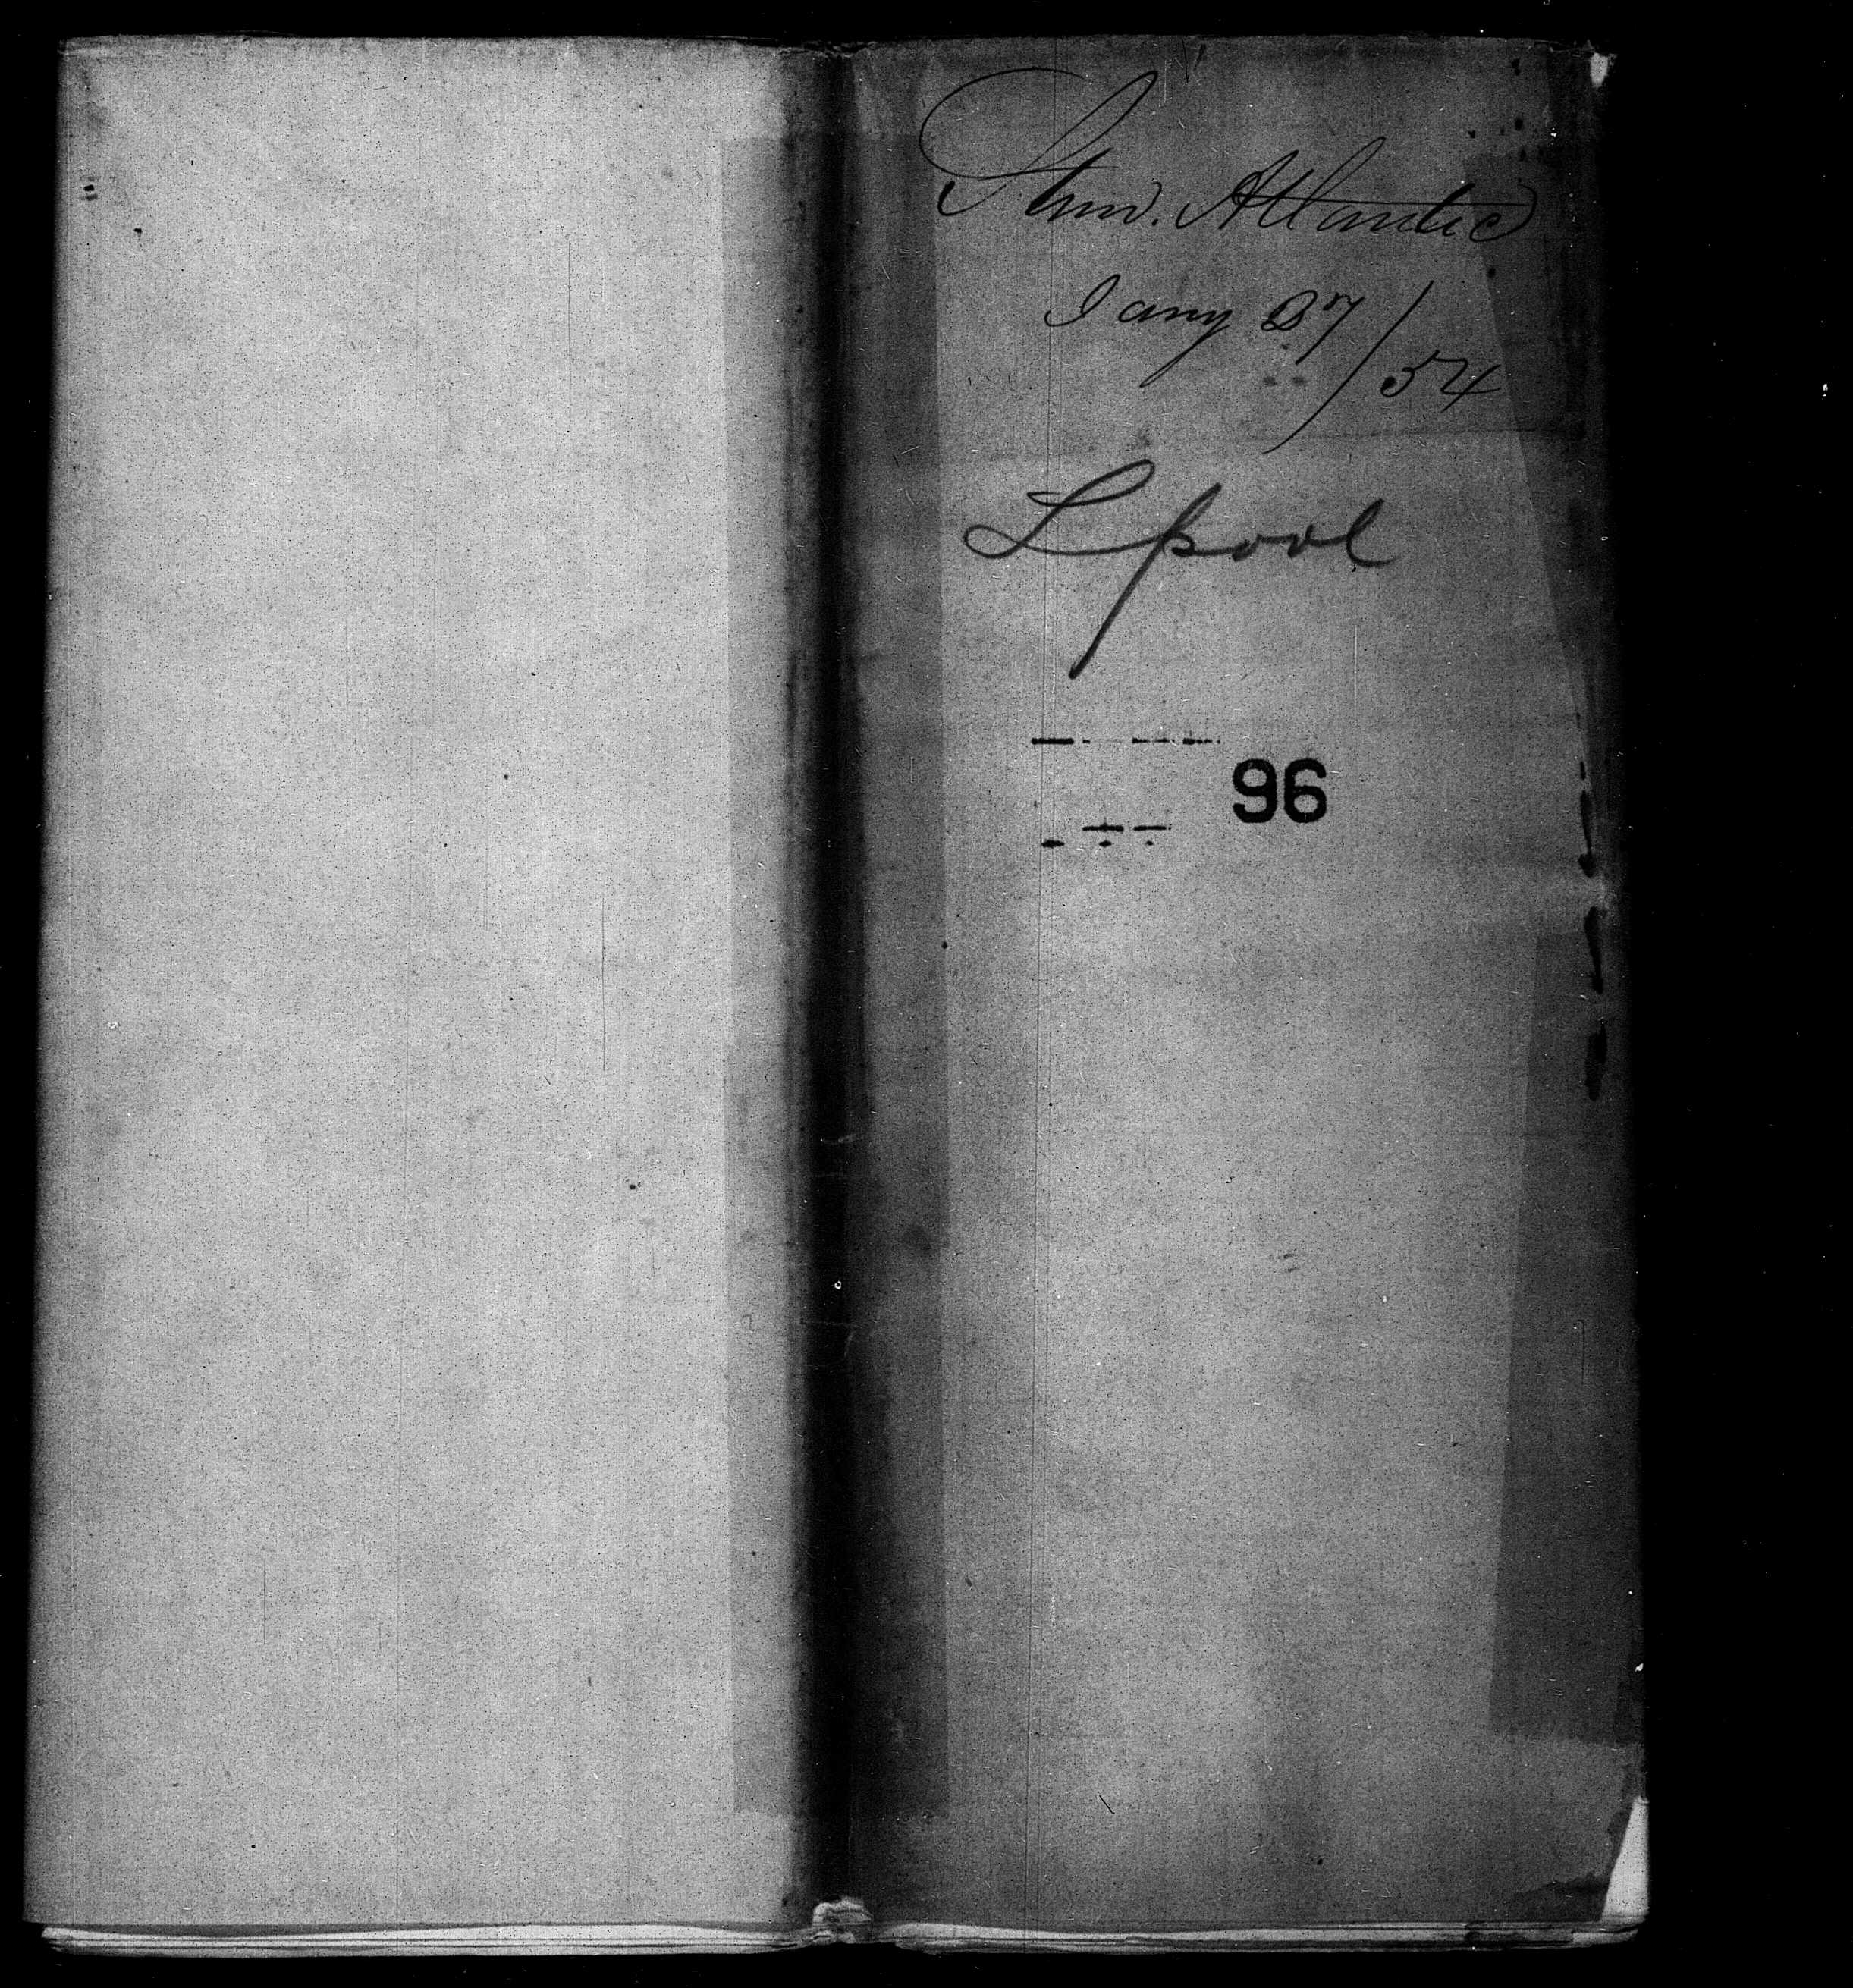 Stmr. Atlantic
Jany 27/54
Lpool
96